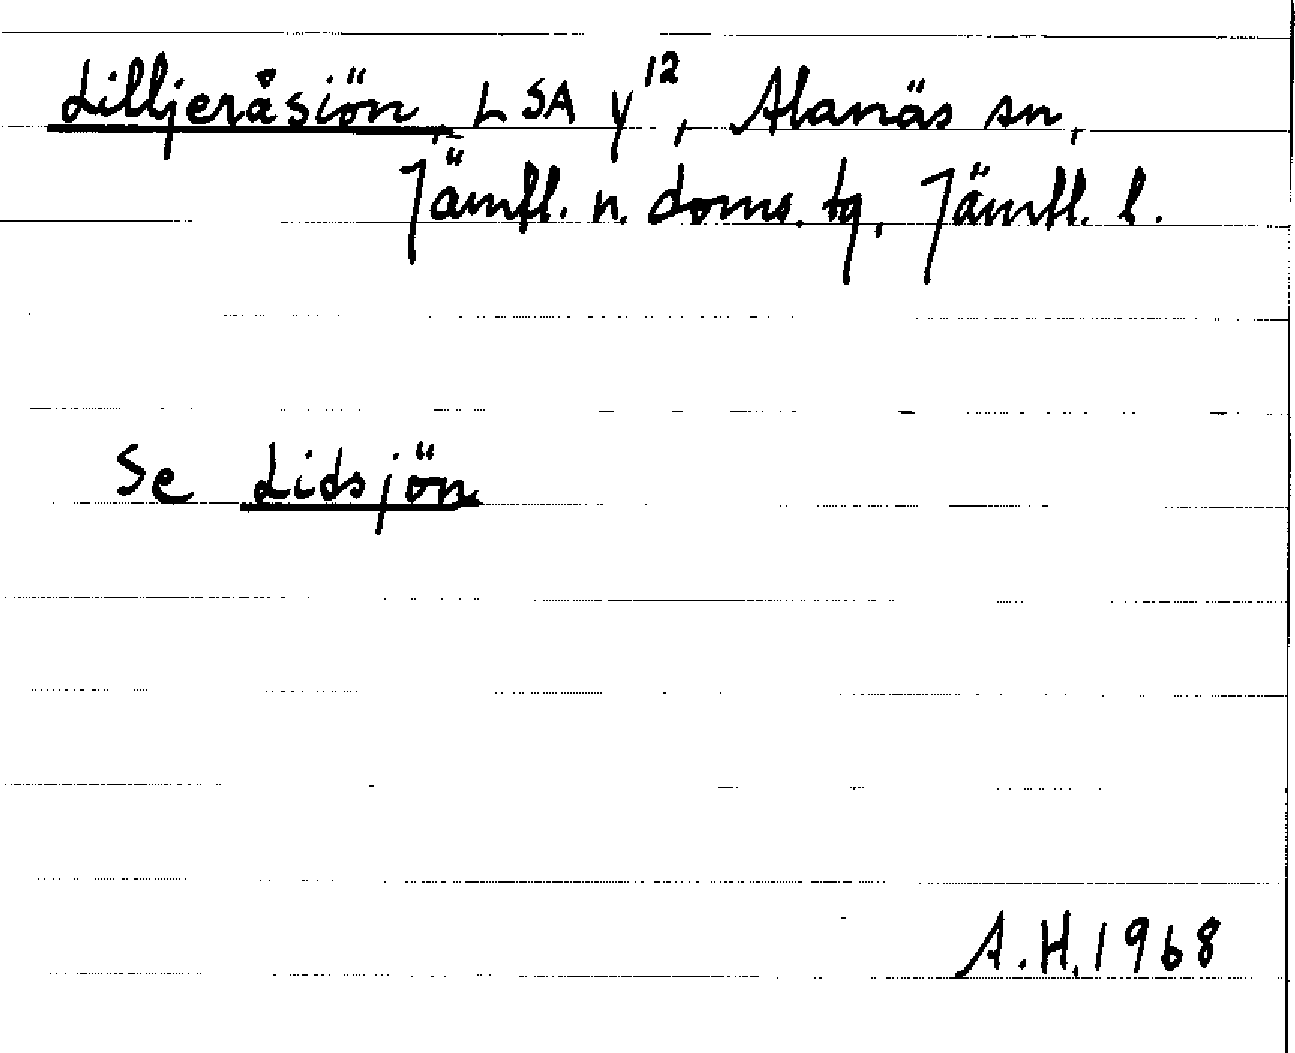 Lilljeråsiön, LSA y¹², Alanäs sn,
Jämtl. n. doms. tg, Jämtl. l.
Se Lidsjön
A.H. 1968